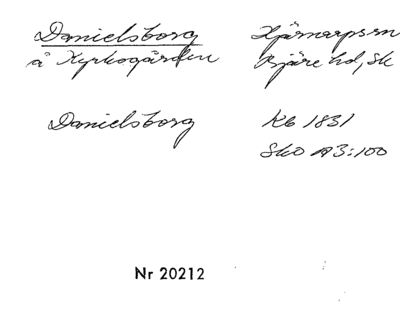 Danielsborg Hjärnarps sn
å Kyrkogården Bjäre hd, Sk
Danielsborg Kb 1831
Sko A3:100
Nr 20212